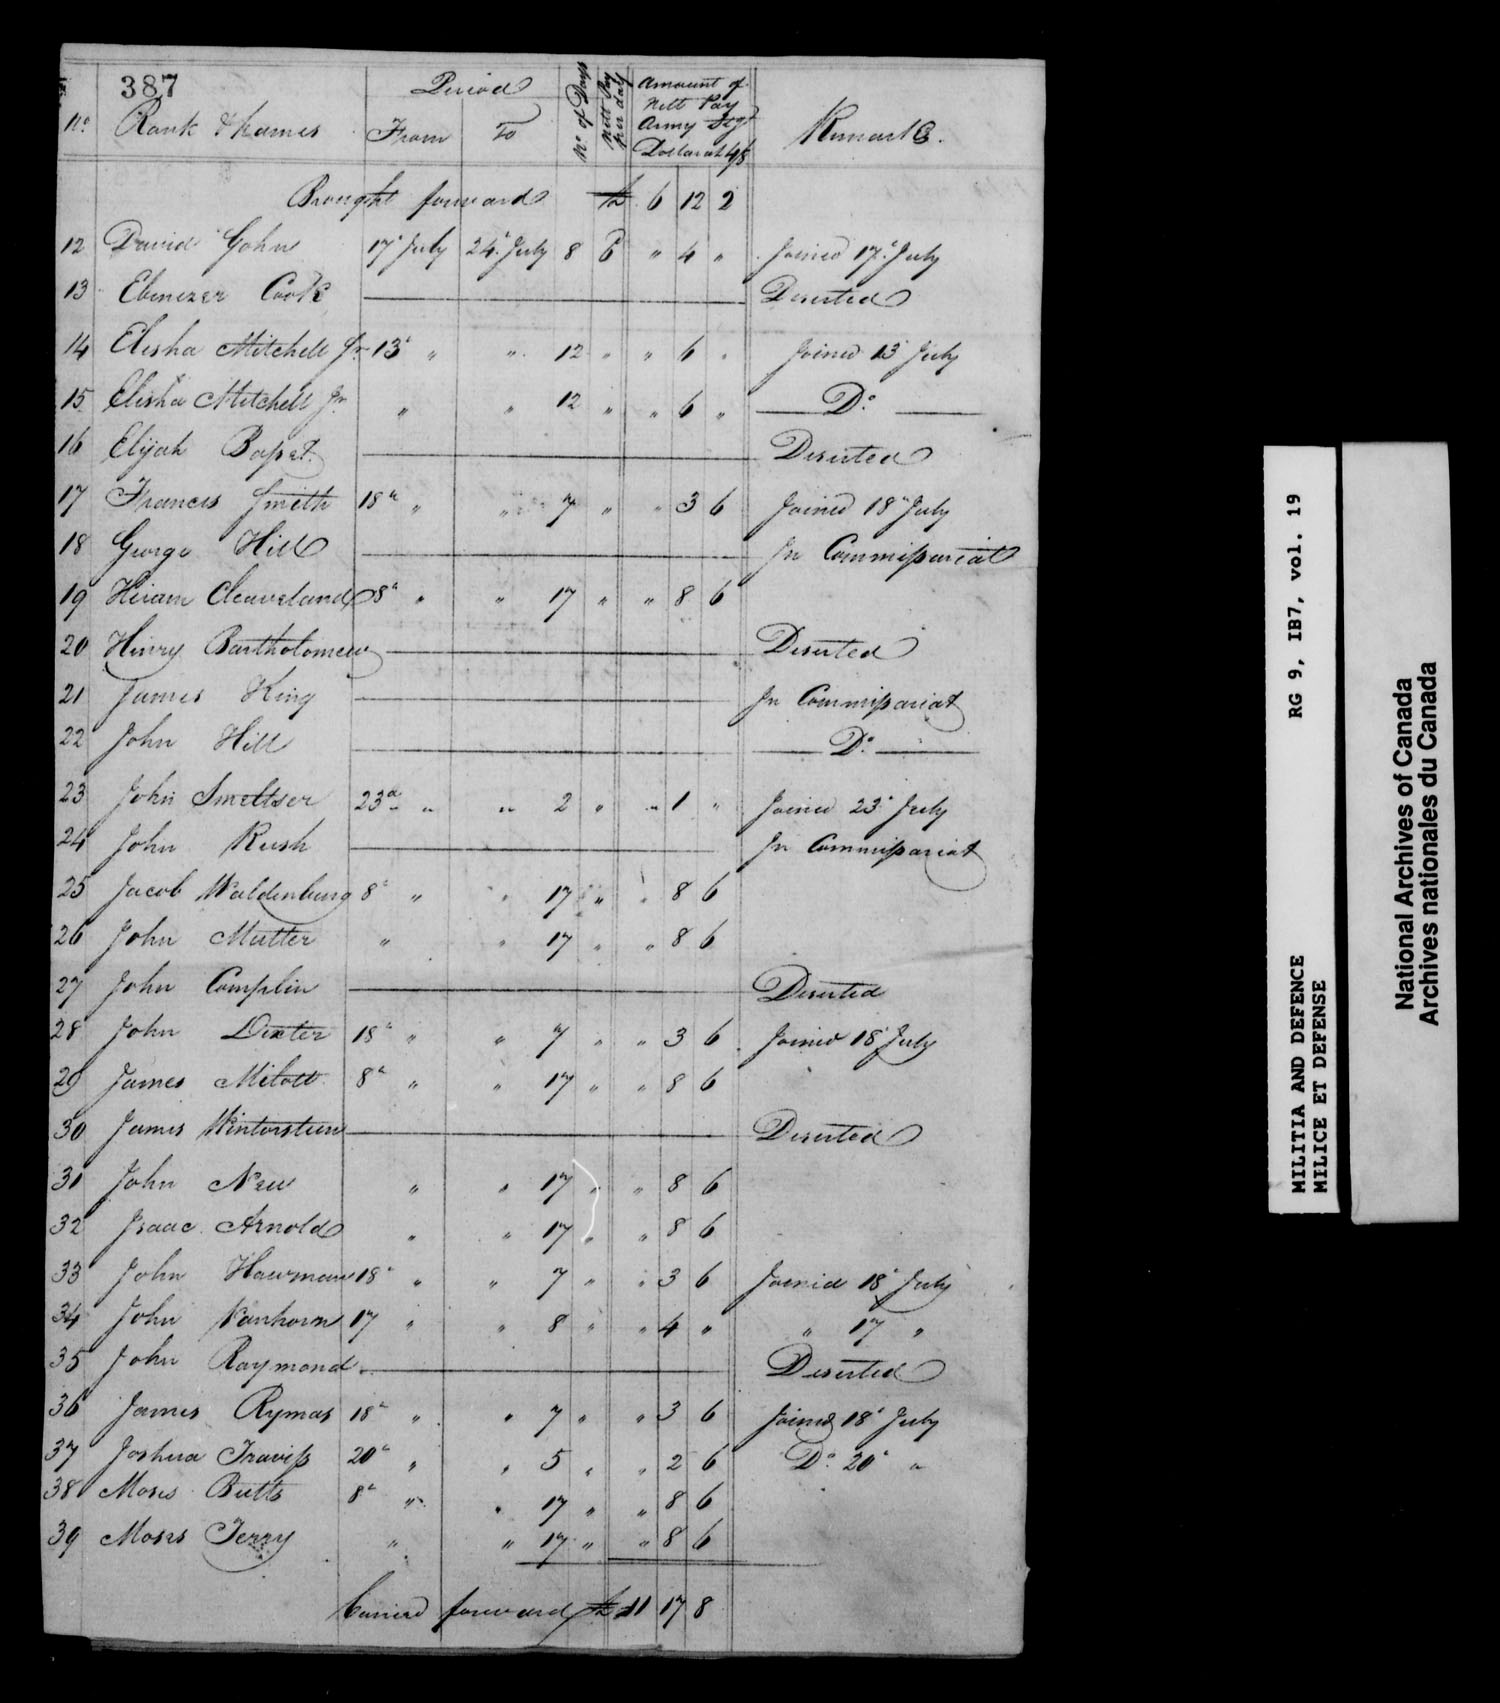 387
Period
No Rank & Names From To No of Days Nett Pay per day Amount of Nett Pay Army Stg Dollar at 4/8 Remarks.
Brought forward £ 6 12 2
12 David John 17th July 24th July 8 6 " 4 " Joined 17th July
13 Ebenezer Cook Deserted
14 Elisha Mitchell Jr 13th " " 12 " " 6 " Joined 13th July
15 Elisha Mitchell Jr " " 12 " " 6 " Do
16 Elijah Deserted
17 Francis Smith 18th " " 7 " " 3 6 Joined 18th July
18 George Hill In Commissariat
19 Hiram Cleaveland 8th " " 17 " " 8 6
20 Henry Bartholomew Deserted
21 James King In Commissariat
22 John Hill Do
23 John Smeltser 23d " " 2 " " 1 " Joined 23d July
24 John Rush In Commissariat
25 Jacob Waldenburg 8th " " 17 " " 8 6
26 John Mutter " " 17 " " 8 6
27 John Complin Deserted
28 John Dexter 18th " " 7 " " 3 6 Joined 18th July
29 James 8th " " 17 " " 8 6
30 James Wintersteen Deserted
31 John New " " 17 " " 8 6
32 Isaac Arnold " " 17 " " 8 6
33 John Hawman 18th " " 7 " " 3 6 Joined 18th July
34 John Vanhorn 17 " " 8 " " 4 " " 17 "
35 John Raymond Deserted
36 James Rymas 18th " " 7 " " 3 6 Joined 18th July
37 Joshua Traviss 20th " " 5 " " 2 6 Do 20th "
38 Moses Butts 8th " " 17 " " 8 6
39 Moses Terry " " 17 " " 8 6
Carried forward £ 11 17 8
MILITIA AND DEFENCE RG 9, IB7, vol. 19
MILICE ET DEFENSE
National Archives of Canada
Archives nationales du Canada